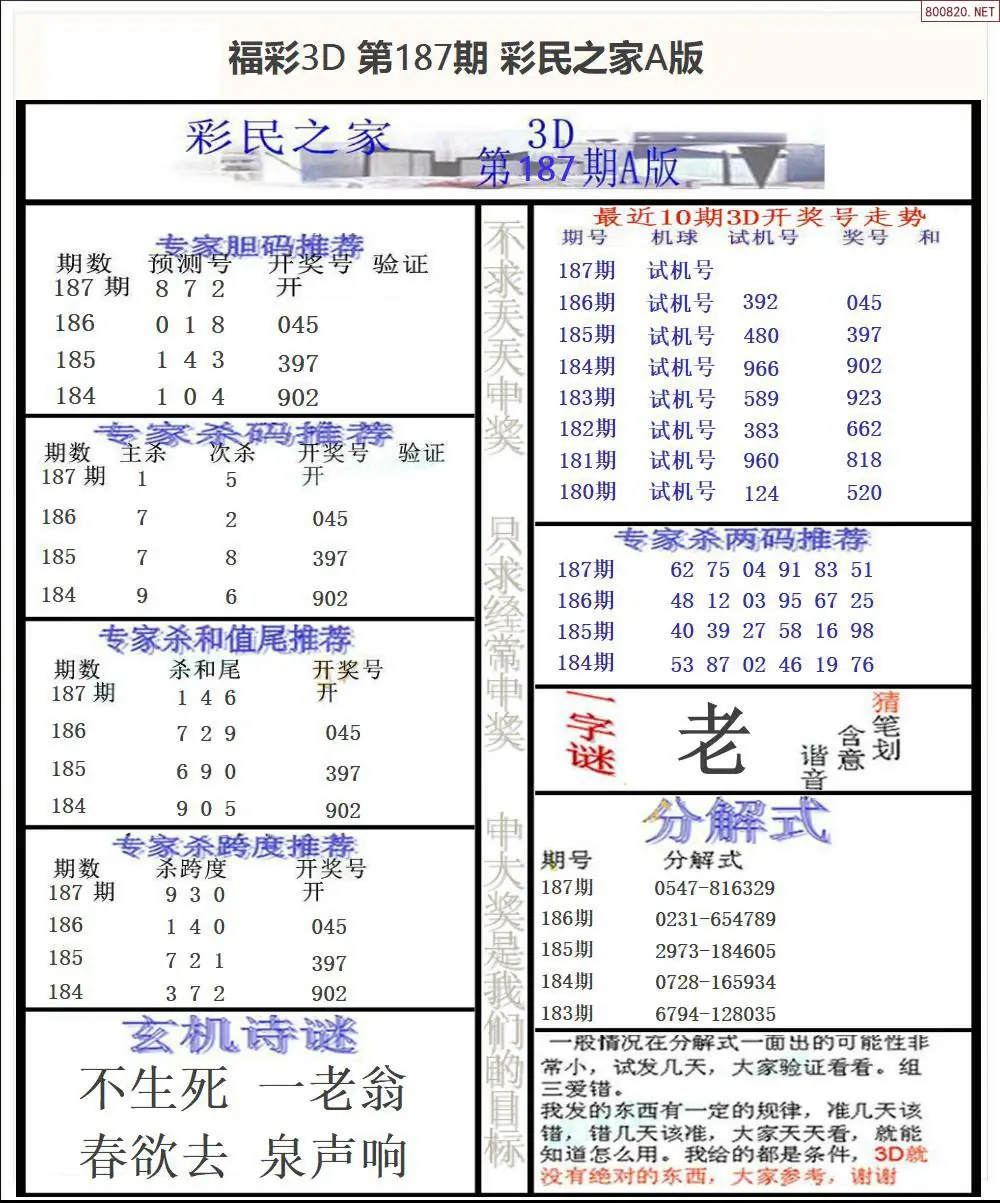 800820.NET
福彩3D 第187期 彩民之家A版
彩民之家 3D
第187期A版
专家胆码推荐
期数 预测号 开奖号 验证
187期 8 7 2 开
186 0 1 8 045
185 1 4 3 397
184 1 0 4 902
专家杀码推荐
期数 主杀 次杀 开奖号 验证
187期 1 5 开
186 7 2 045
185 7 8 397
184 9 6 902
专家杀和值尾推荐
期数 杀和尾 开奖号
187期 1 4 6 开
186 7 2 9 045
185 6 9 0 397
184 9 0 5 902
专家杀跨度推荐
期数 杀跨度 开奖号
187期 9 3 0 开
186 1 4 0 045
185 7 2 1 397
184 3 7 2 902
玄机诗谜
不生死 一老翁
春欲去 泉声响
不求天天中奖
只求经常中奖
中大奖是我们的目标
最近10期3D开奖号走势
期号 机球 试机号 奖号 和
187期 试机号
186期 试机号 392 045
185期 试机号 480 397
184期 试机号 966 902
183期 试机号 589 923
182期 试机号 383 662
181期 试机号 960 818
180期 试机号 124 520
专家杀两码推荐
187期 62 75 04 91 83 51
186期 48 12 03 95 67 25
185期 40 39 27 58 16 98
184期 53 87 02 46 19 76
一字谜
老
猜笔划
含意
谐音
分解式
期号 分解式
187期 0547-816329
186期 0231-654789
185期 2973-184605
184期 0728-165934
183期 6794-128035
一般情况在分解式一面出的可能性非
常小，试发几天，大家验证看看。组
三爱错。
我发的东西有一定的规律，准几天该
错，错几天该准，大家天天看，就能
知道怎么用。我给的都是条件，3D就
没有绝对的东西，大家参考，谢谢